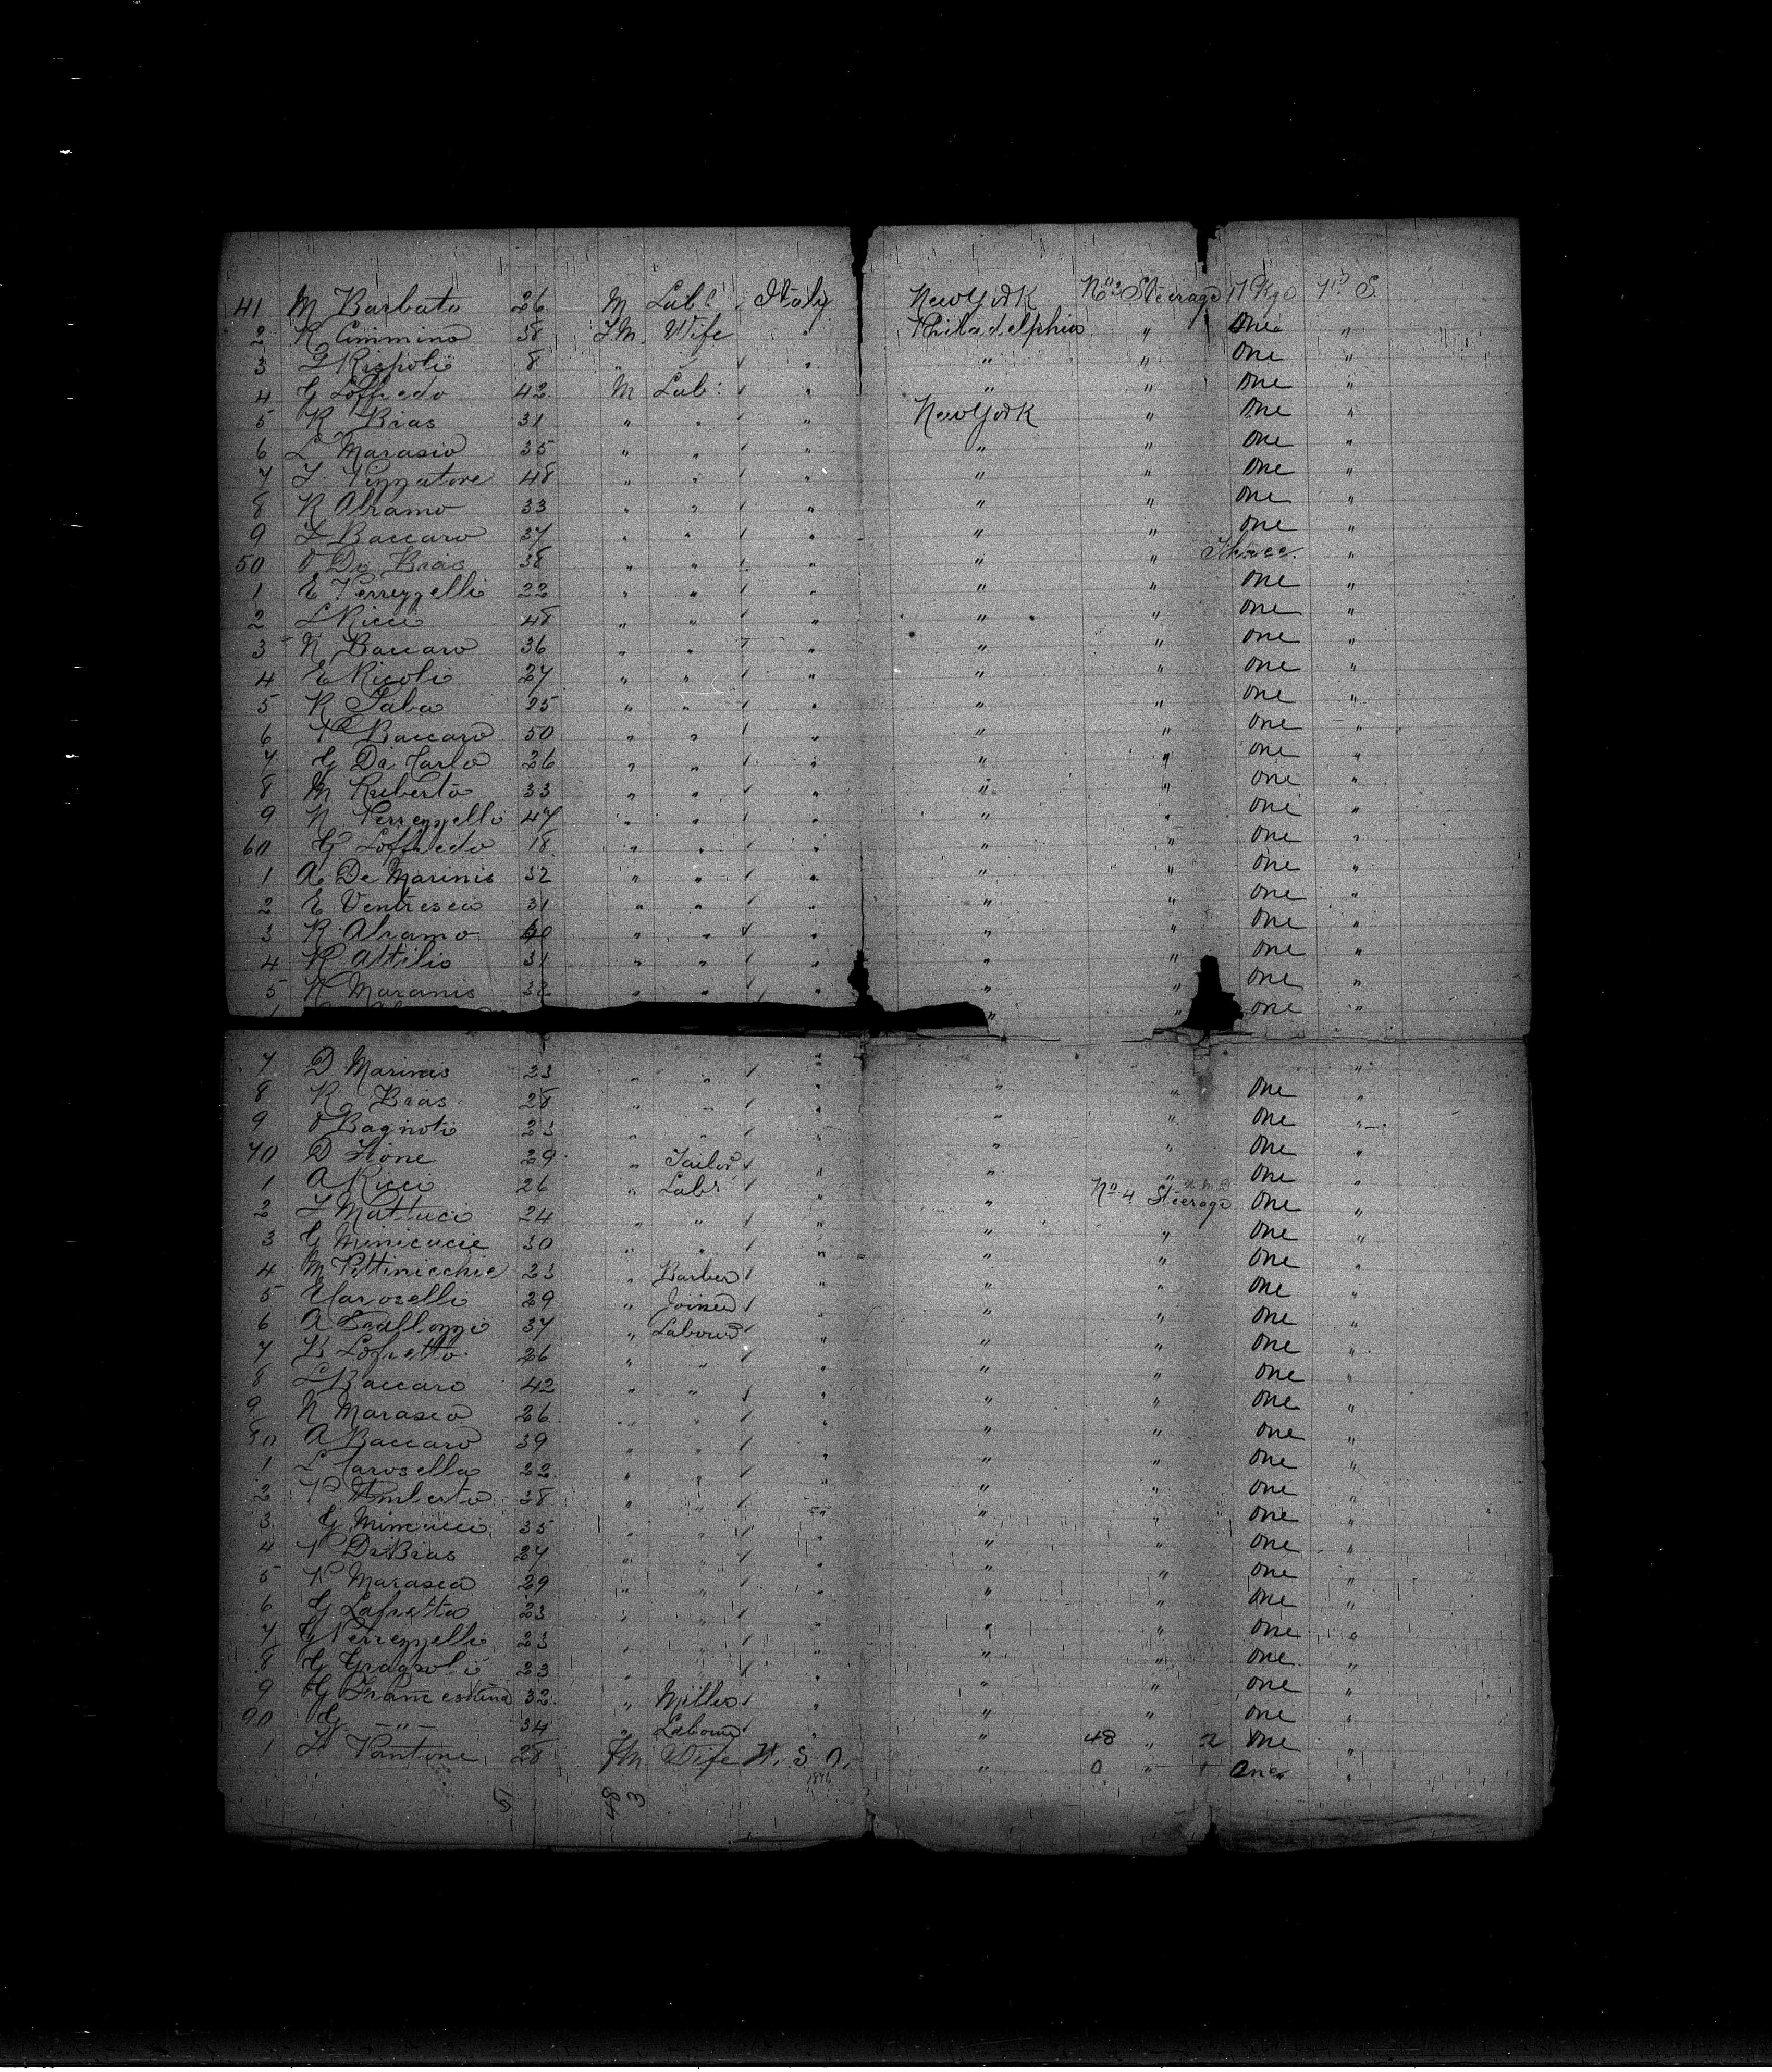 41 M Barbato 26 M Lab. Italy New York No. 3 Steerage 1 Pkge P. S.
2 R Cimmino 38 FM. Wife " Philadelphia " One "
3 G Rispoli 8 " " " " One "
4 G Loffredo 42 M Lab: " " " One "
5 R Bias 31 " " " New York " One "
6 L Marasio 35 " " " " " One "
7 F. Pizzatore 48 " " " " " One "
8 R Abramo 33 " " " " " One "
9 F Baccaro 37 " " " " " One "
50 De Bias 38 " " " " " Three "
1 E Perrezzelli 22 " " " " " One "
2 L Ricci 48 " " " " " One "
3 N Baccaro 36 " " " " " One "
4 E Ricoli 27 " " " " " One "
5 R Saba 25 " " " " " One "
6 P Baccaro 50 " " " " " One "
7 G De Carlo 26 " " " " " One "
8 M Ruberto 33 " " " " " One "
9 N Perrezzelli 47 " " " " " One "
60 G Loffredo 18 " " " " " One "
1 De Marinis 32 " " " " " One "
2 E Ventresca 31 " " " " " One "
3 R Abramo 40 " " " " " One "
4 R Attilio 31 " " " " " One "
5 N Maranis 32 " " " " " One "
" " One "
7 D Marinis 23 " " " "
8 R Bias 28 " " " " " One "
9 Bagnoti 23 " " " " " One "
70 D Fione 29 " Tailor " " " One "
1 A Ricci 26 " Labr " " No. 4 Steerage One "
2 F Mattuci 24 " " " " One "
3 G Minicucie 30 " " " " " One "
4 M Pittinicchie 23 " Barber " " " One "
5 Caroselli 29 " Joiner " " " One "
6 A 37 " Labour " " " One "
7 B Lofretto 26 " " " " " One "
8 L Baccaro 42 " " " " " One "
9 N Marasco 26 " " " " " One "
80 A Baccaro 39 " " " " " One "
1 L Carosella 22 " " " " " One "
2 P Umberto 38 " " " " " One "
3 G Minicucci 35 " " " " " One "
4 P De Bias 27 " " " " " One "
5 P Marasca 29 " " " " " One "
6 G Lafretta 23 " " " " " One "
7 G Perrezzelli 23 " " " " " One "
8 G Gragnoli 23 " " " " " One "
9 G 32 " Miller " " " One "
90 G —"— 34 " Labour " " 48 " 2 One "
1 Pantone 28 FM Wife U. S. A. " 0 " 1 One "
1876
5 48 3